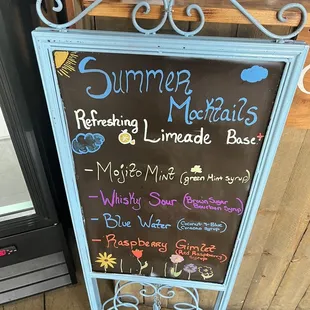 Summer
Mocktails
Refreshing
Limeade Base
- Mojito Mint (green Mint syrup)
- Whisky Sour (Brown Sugar
Bourbon Syrup)
- Blue Water (Coconut & Blue
Curacao Syrup)
- Raspberry Gimlet
(Red Raspberry
Syrup)